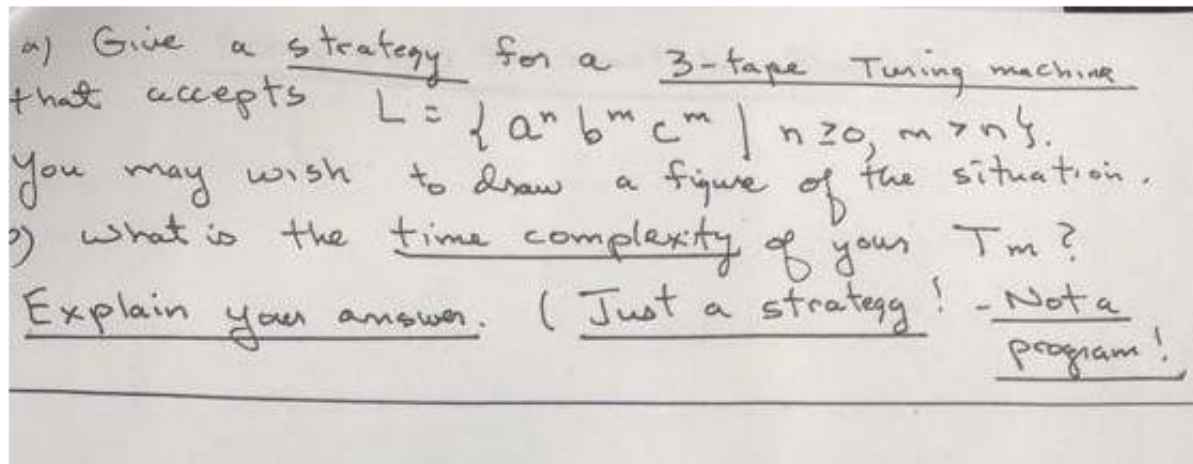 a) Give a strategy for a 3-tape Turing machine
that accepts L = { aⁿ bᵐ cᵐ | n ≥ 0, m > n }.
You may wish to draw a figure of the situation.
) What is the time complexity of your Tm?
Explain your answer. ( Just a strategy! - Not a
program!